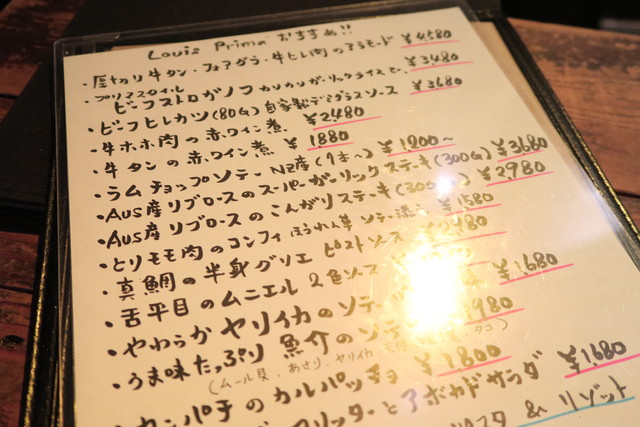 Louis Prima おすすめ!!
・厚切り牛タン・フォアグラ・牛ヒレ肉のアラモード ¥4580
・プリマスタイル ビーフストロガノフ カリカリガーリックライスで、 ¥3480
・ビーフヒレカツ(80G)自家製デミグラスソース ¥3680
・牛ホホ肉の赤ワイン煮 ¥2480
・牛タンの赤ワイン煮 ¥1880
・ラムチョップソテー NZ産(1本〜) ¥1200〜
・Aus産リブロースのスーパーガーリックステーキ(300G) ¥3680
・Aus産リブロースのこんがりステーキ(300 ¥2980
・とりモモ肉のコンフィ ほうれん草ソテー添え ¥1580
・真鯛の半身グリエ ピストソース 2480
・舌平目のムニエル 2色ソース
・やわらかヤリイカのソテー ¥1,680
・うま味たっぷり魚介のソテ 980
(ムール貝、あさり、ヤリイカ、 タコ)
カンパチのカルパッチョ ¥1.800
リッターとアボカドサラダ ¥1680
スタ & リゾット